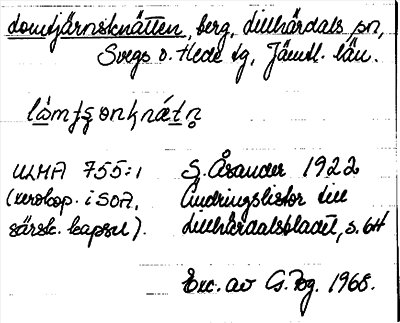 Lomtjärnsknätten, berg, Lillhärdals sn,
Svegs o. Hede tg, Jämtl. län.
ULMA 755:1 S. Åsander 1922
(xerokop. i SOA, Ändringslistor till
särsk. kapsel). Lillhärdalsbladet, s. 64
Exc. av 1968.